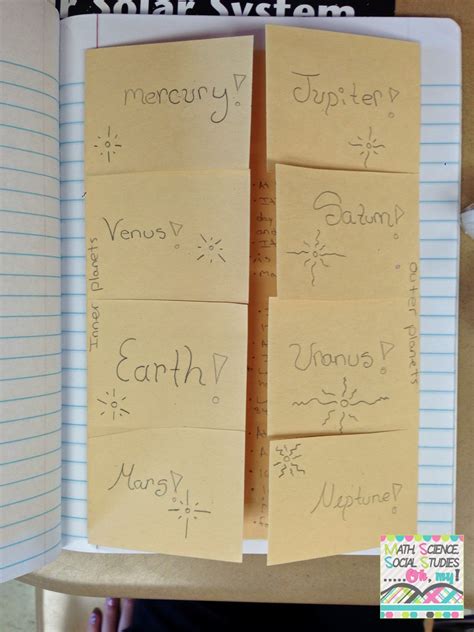 Solar System
mercury!
Jupiter!
Venus!
Saturn!
Inner planets
outer planets
Earth!
Uranus!
Mars!
Neptune!
MATH SCIENCE
SOCIAL STUDIES
.....Oh, my!